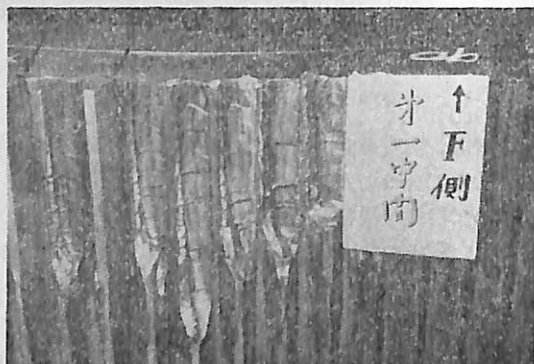 ↑下側
第一中間